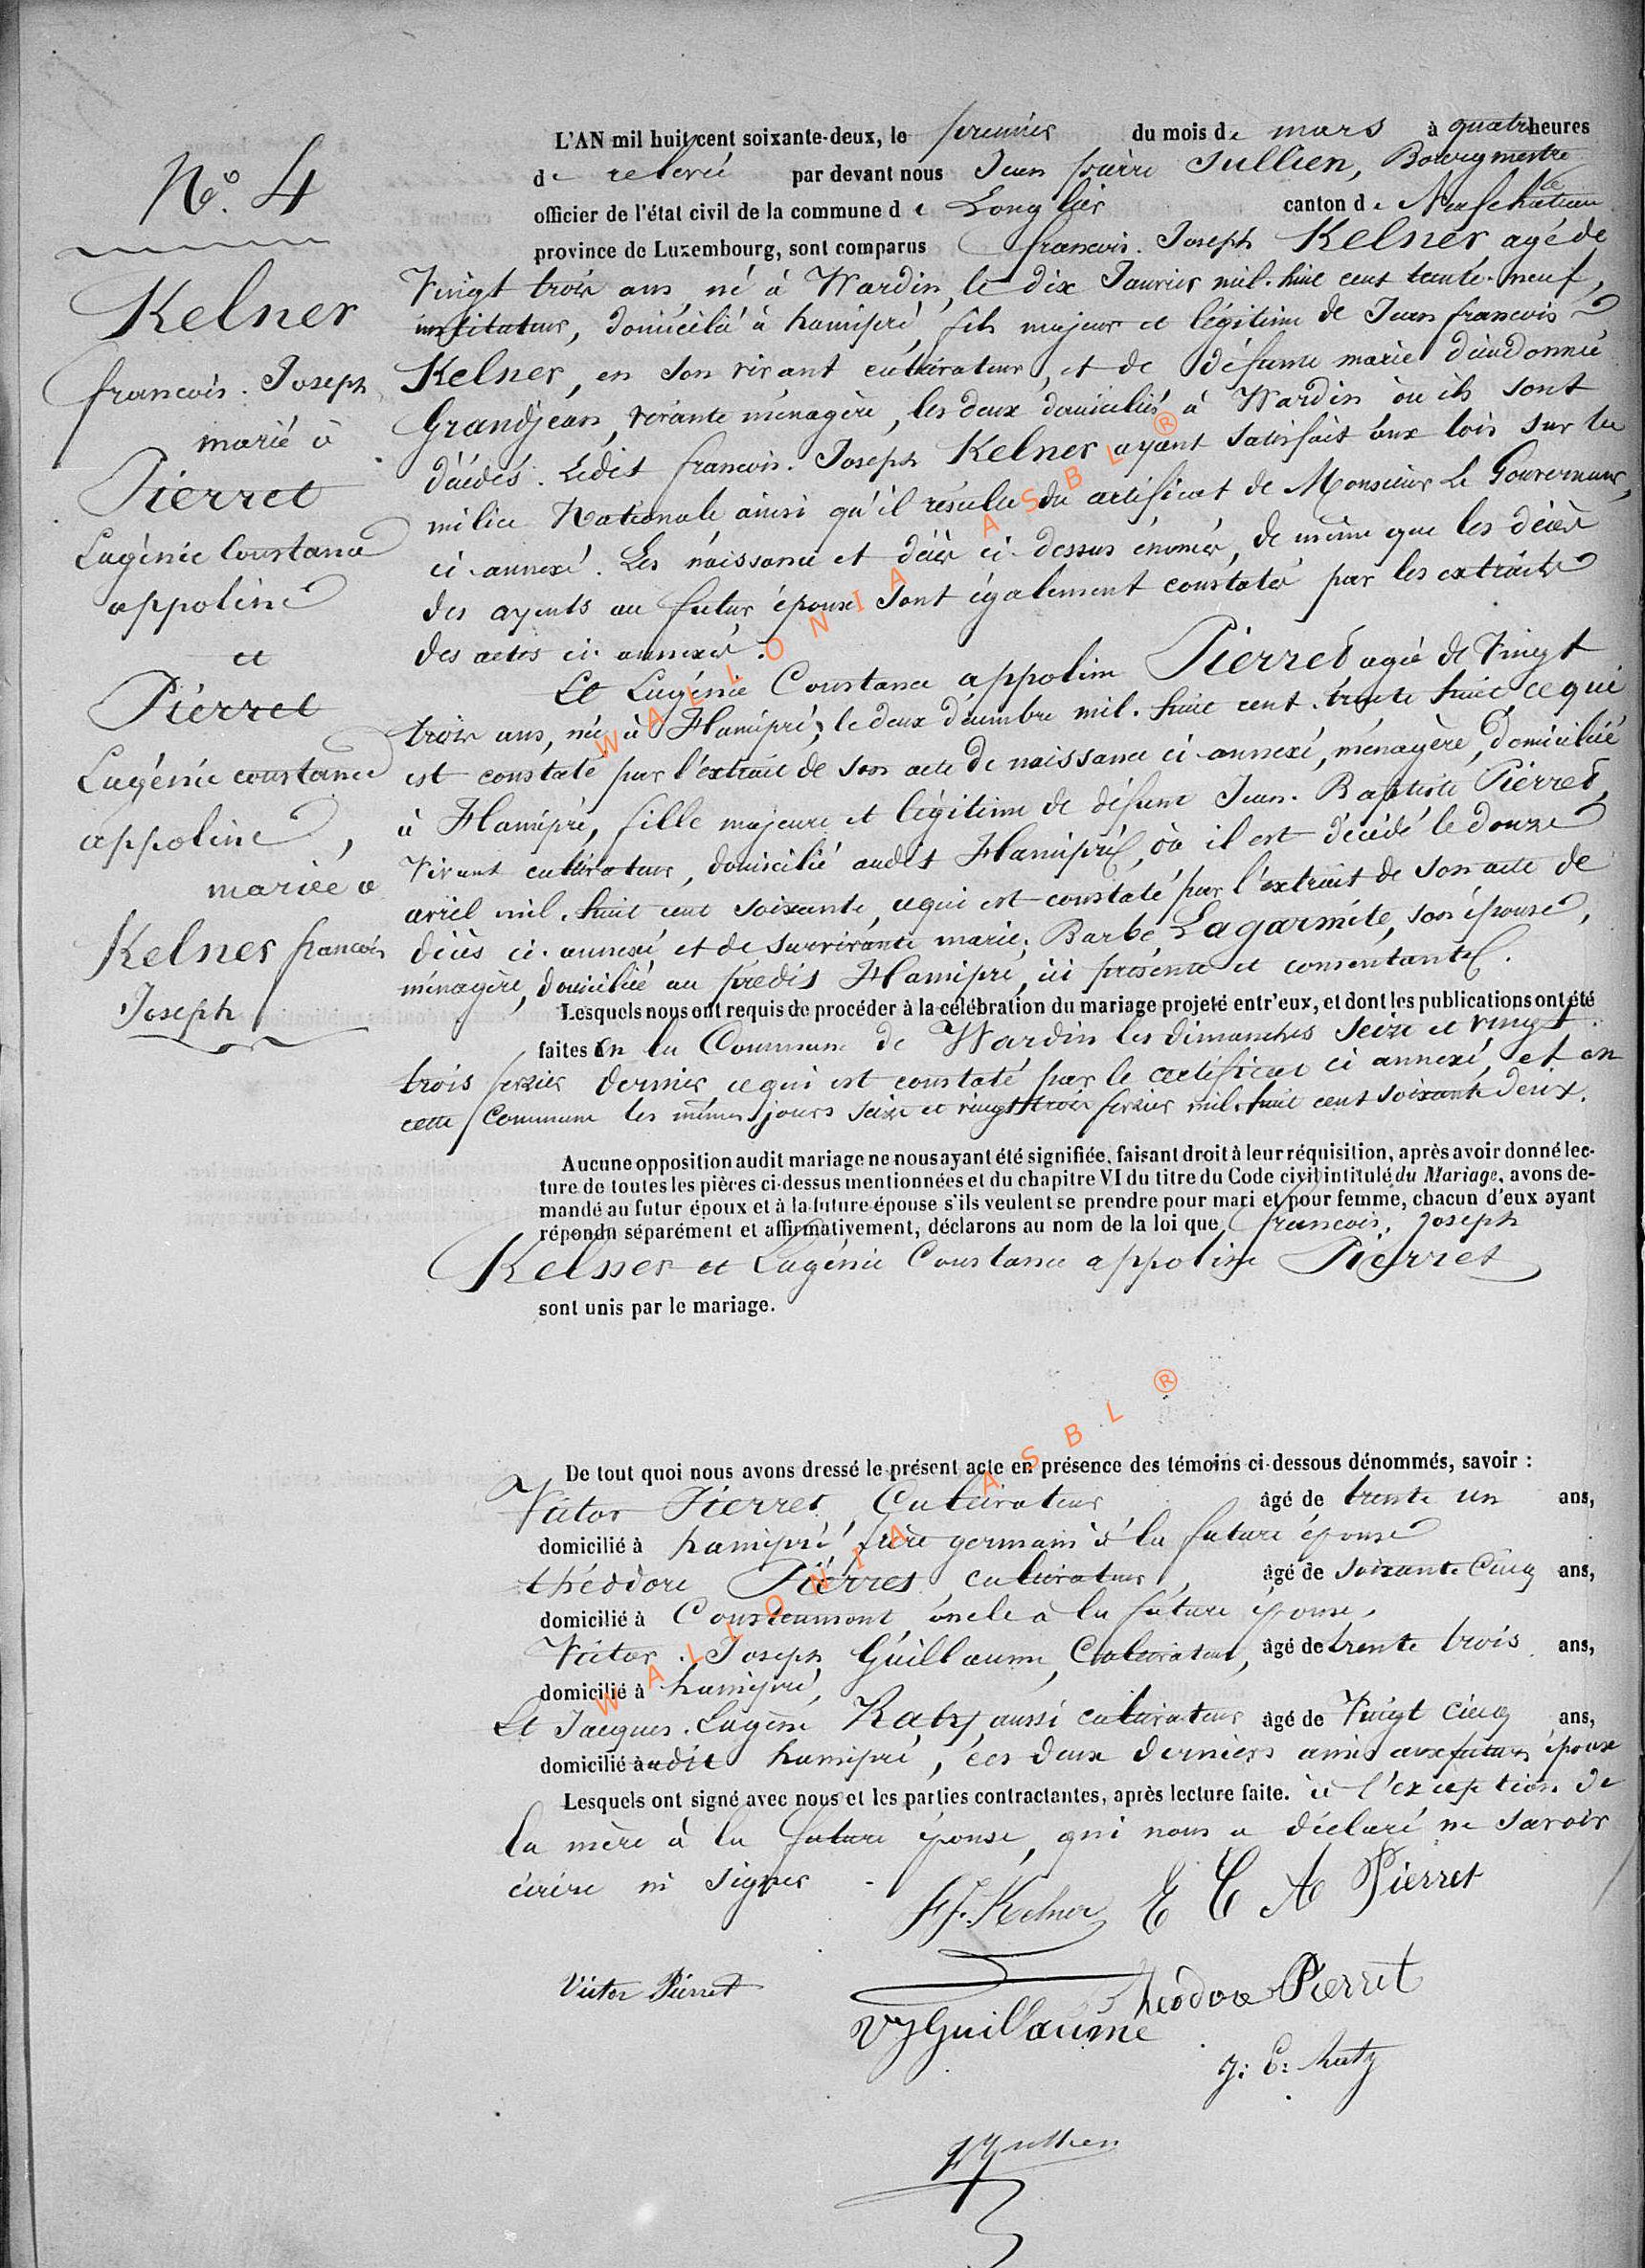 N°. 4
Kelner
francois. Joseph
marié à
Pierret
Eugénie Constance
appoline
et
Pierret
Eugénie constance
appoline,
mariée a
Kelner francois
Joseph
L'AN mil huit cent soixante-deux, le premier du mois de mars à quatre heures
de relevée par devant nous Jean pierre Jullien, Bourgmestre
officier de l'état civil de la commune de Longlier canton de Neufchateau
province de Luxembourg, sont comparus francois. Joseph Kelner, agé de
Vingt trois ans, né à Wardin, le dix Janvier mil. huit cent trente-neuf,
instituteur, domicilié à hamipré, fils majeur et légitime de Jean francois
Kelner, en son vivant cultivateur, et de défunte marie dieudonnée
Grandjean, vivante ménagère, les deux domiciliés à Wardin où ils sont
décédés. Ledit francois. Joseph Kelner ayant satisfait aux lois sur la
milice Nationale ainsi qu'il résulte du certificat de Monsieur Le Gouverneur,
ci-annexé. Les naissance et décès ci-dessus énoncés, de même que les décès
des ayeuls au futur époux sont également constatés par les extraits
des actes ci-annexés.
Et Eugénie Constance appoline Pierret agée de Vingt
trois ans, née à Hamipré, le deux décembre mil. huit cent. trente huit, ce qui
est constaté par l'extrait de son acte de naissance ci-annexé, ménagère, domiciliée
à Hamipré, fille majeure et légitime de défunt Jean. Baptiste Pierret,
Vivant cultivateur, domicilié audit Hamipré, où il est décédé le douze
avril mil. huit cent soixante, ce qui est constaté par l'extrait de son acte de
décès ci-annexé et de survivante marie. Barbe Lagarmite, son épouse,
ménagère, domiciliée au prédit Hamipré, ici présente et consentante.
Lesquels nous ont requis de procéder à la célébration du mariage projeté entr'eux, et dont les publications ont été
faites en la Commune de Wardin les dimanches seize et vingt.
trois fevrier dernier, ce qui est constaté par le certificat ci annexé, et en
cette Commune les mêmes jours seize et vingt trois fevrier mil. huit cent soixante deux.
Aucune opposition audit mariage ne nous ayant été signifiée, faisant droit à leur réquisition, après avoir donné lec-
ture de toutes les pièces ci-dessus mentionnées et du chapitre VI du titre du Code civil intitulé du Mariage, avons de-
mandé au futur époux et à la future épouse s'ils veulent se prendre pour mari et pour femme, chacun d'eux ayant
répondu séparément et affirmativement, déclarons au nom de la loi que francois. Joseph
Kelner et Eugénie Constance appoline Pierret
sont unis par le mariage.
De tout quoi nous avons dressé le présent acte en présence des témoins ci-dessous dénommés, savoir :
Victor Pierret, Cultivateur âgé de trente un ans,
domicilié à hamipré, frère germain à la future épouse
théodore Pierret, cultivateur, âgé de soixante Cinq ans,
domicilié à Cousteumont, oncle à la future épouse,
Victor. Joseph Guillaume, Cultivateur, âgé de trente trois ans,
domicilié à hamipré,
Et Jacques. Eugène Raty, aussi cultivateur âgé de Vingt cinq ans,
domicilié audit hamipré, ces deux derniers amis aux futurs époux
Lesquels ont signé avec nous et les parties contractantes, après lecture faite. à l'exception de
la mère à la future épouse, qui nous a déclaré ne savoir
écrire ni signer
FJ. Kelner E C A Pierret
Victor Pierret théodore Pierret
VJGuillaume
J: E: Raty
Jullien
WALLONIA ASBL ®
WALLONIA ASBL ®